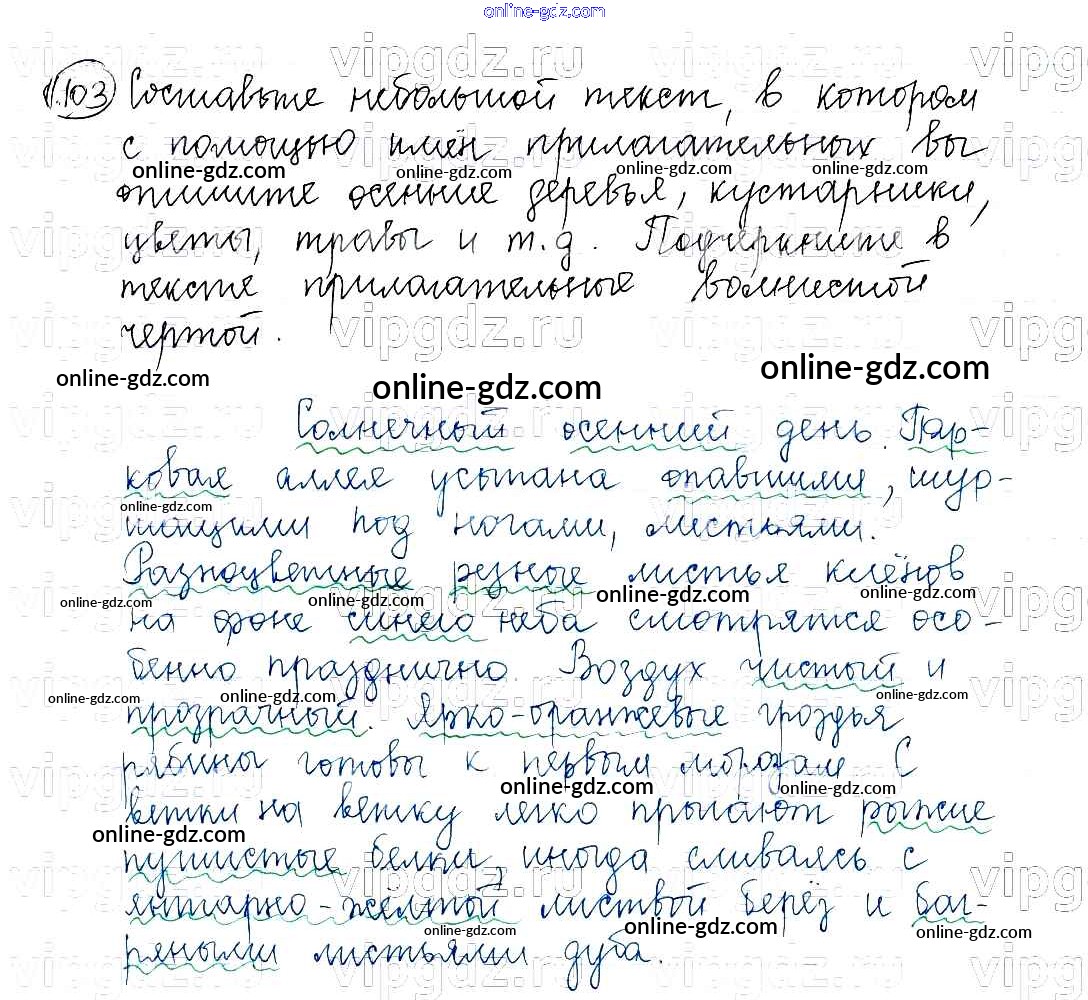 online-gdz.com
1.103 Составьте небольшой текст, в котором
с помощью имён прилагательных вы
опишите осенние деревья, кустарники,
цветы, травы и т.д. Подчеркните в
тексте прилагательные волнистой
чертой.
online-gdz.com online-gdz.com online-gdz.com
Солнечный осенний день. Пар-
ковая аллея усыпана опавшими, шур-
шащими под ногами, листьями.
Разноцветные резные листья клёнов
на фоне синего неба смотрятся осо-
бенно празднично. Воздух чистый и
прозрачный. Ярко-оранжевые гроздья
рябины готовы к первым морозам. С
ветки на ветку легко прыгают рыжие
пушистые белки, иногда сливаясь с
янтарно-жёлтой листвой берёз и баг-
ряными листьями дуба.